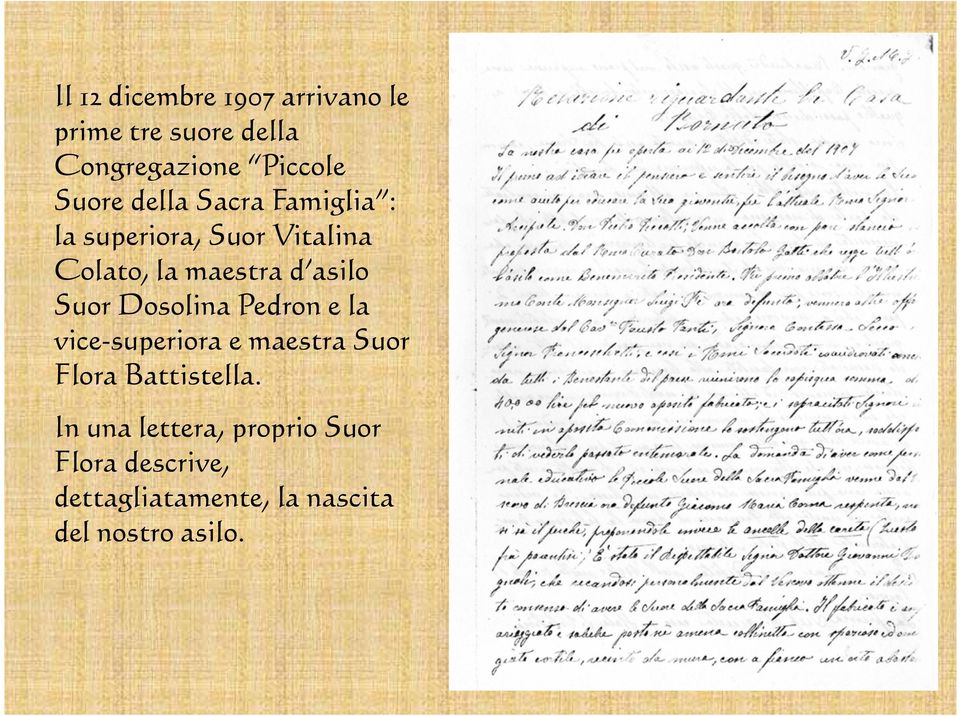 Il 12 dicembre 1907 arrivano le
prime tre suore della
Congregazione “Piccole
Suore della Sacra Famiglia”:
la superiora, Suor Vitalina
Colato, la maestra d’asilo
Suor Dosolina Pedron e la
vice-superiora e maestra Suor
Flora Battistella.
In una lettera, proprio Suor
Flora descrive,
dettagliatamente, la nascita
del nostro asilo.
Relazione riguardante la Casa
di Bornato
La nostra casa fu aperta ai 12 di Dicembre del 1907
Il primo ad ideare il pensiero e sentire il bisogno d'aver le Suo
come aiuto per educare la Sua gioventù, fu l'attuale Signor
Arciprete Don Pietro Piccotti; Venne accolta con pari slancio
proposta dal Curato Don Bortolo Gatti che regge tutt'ò
l'asilo come Benemerito Presidente. Fu primo oblatore l'Illustri
mo Conte Monsignor Luigi Fè ora defunto; vennero altre offe
generose dal Cav Fausto Signora Contessa Secco
Signor Franceschetti, e così i Sacerdoti coaudiovati
da tutti i Benestanti del paese riunirono la cospiqua somma di
40,000 lire pel nuovo apositi fabricato; e i sopracitati Signori
niti in aposita Commissione lo sostengono tutt'ora, soddisfa
ti di vederlo passato entemorale. La domanda di aver come per
nale educativo le Piccole Suore della Sacra Famiglia venne dal
scovo di Brescia ora defunto Giacomo Maria Corna
si sà il perchè, proponendole invece le ancelle della carità (Questo
frà parantisi;) E' stato il Rispettabile Signor Dottore Giovanni
gnoli, che recandosi personalmente dal Vescovo ottenne il
to consenso di avere le Suore della Sacra Famiglia. Il fabricato è
arieggiato e salubre posto in amena collinetta con spazioso ed om
giato cortile, recinto da mura, con a fianco un orto